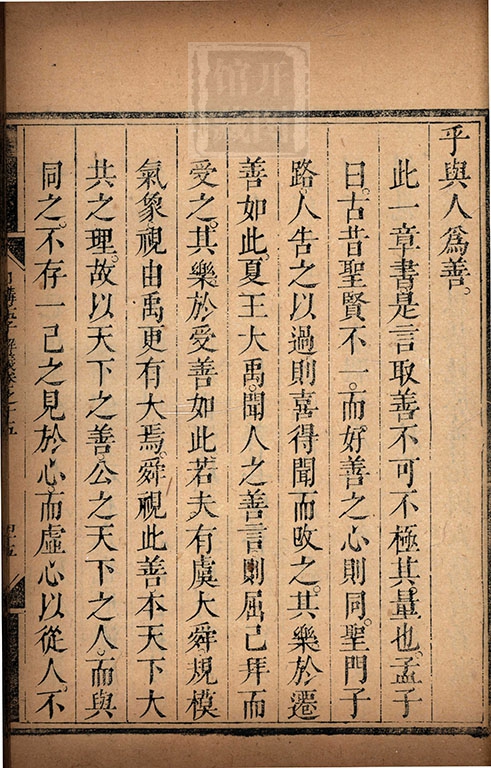 乎與人爲善。
此一章書。是言取善不可不極其量也。孟子
曰。古昔聖賢不一。而好善之心則同。聖門子
路。人告之以過則喜得聞而改之。其樂於遷
善如此。夏王大禹。聞人之善言則屈己拜而
受之。其樂於受善如此若夫有虞大舜規模
氣象視由禹更有大焉。舜視此善本天下大
共之理。故以天下之善。公之天下之人。而與
同之。不存一己之見於心。而虛心以從人。不